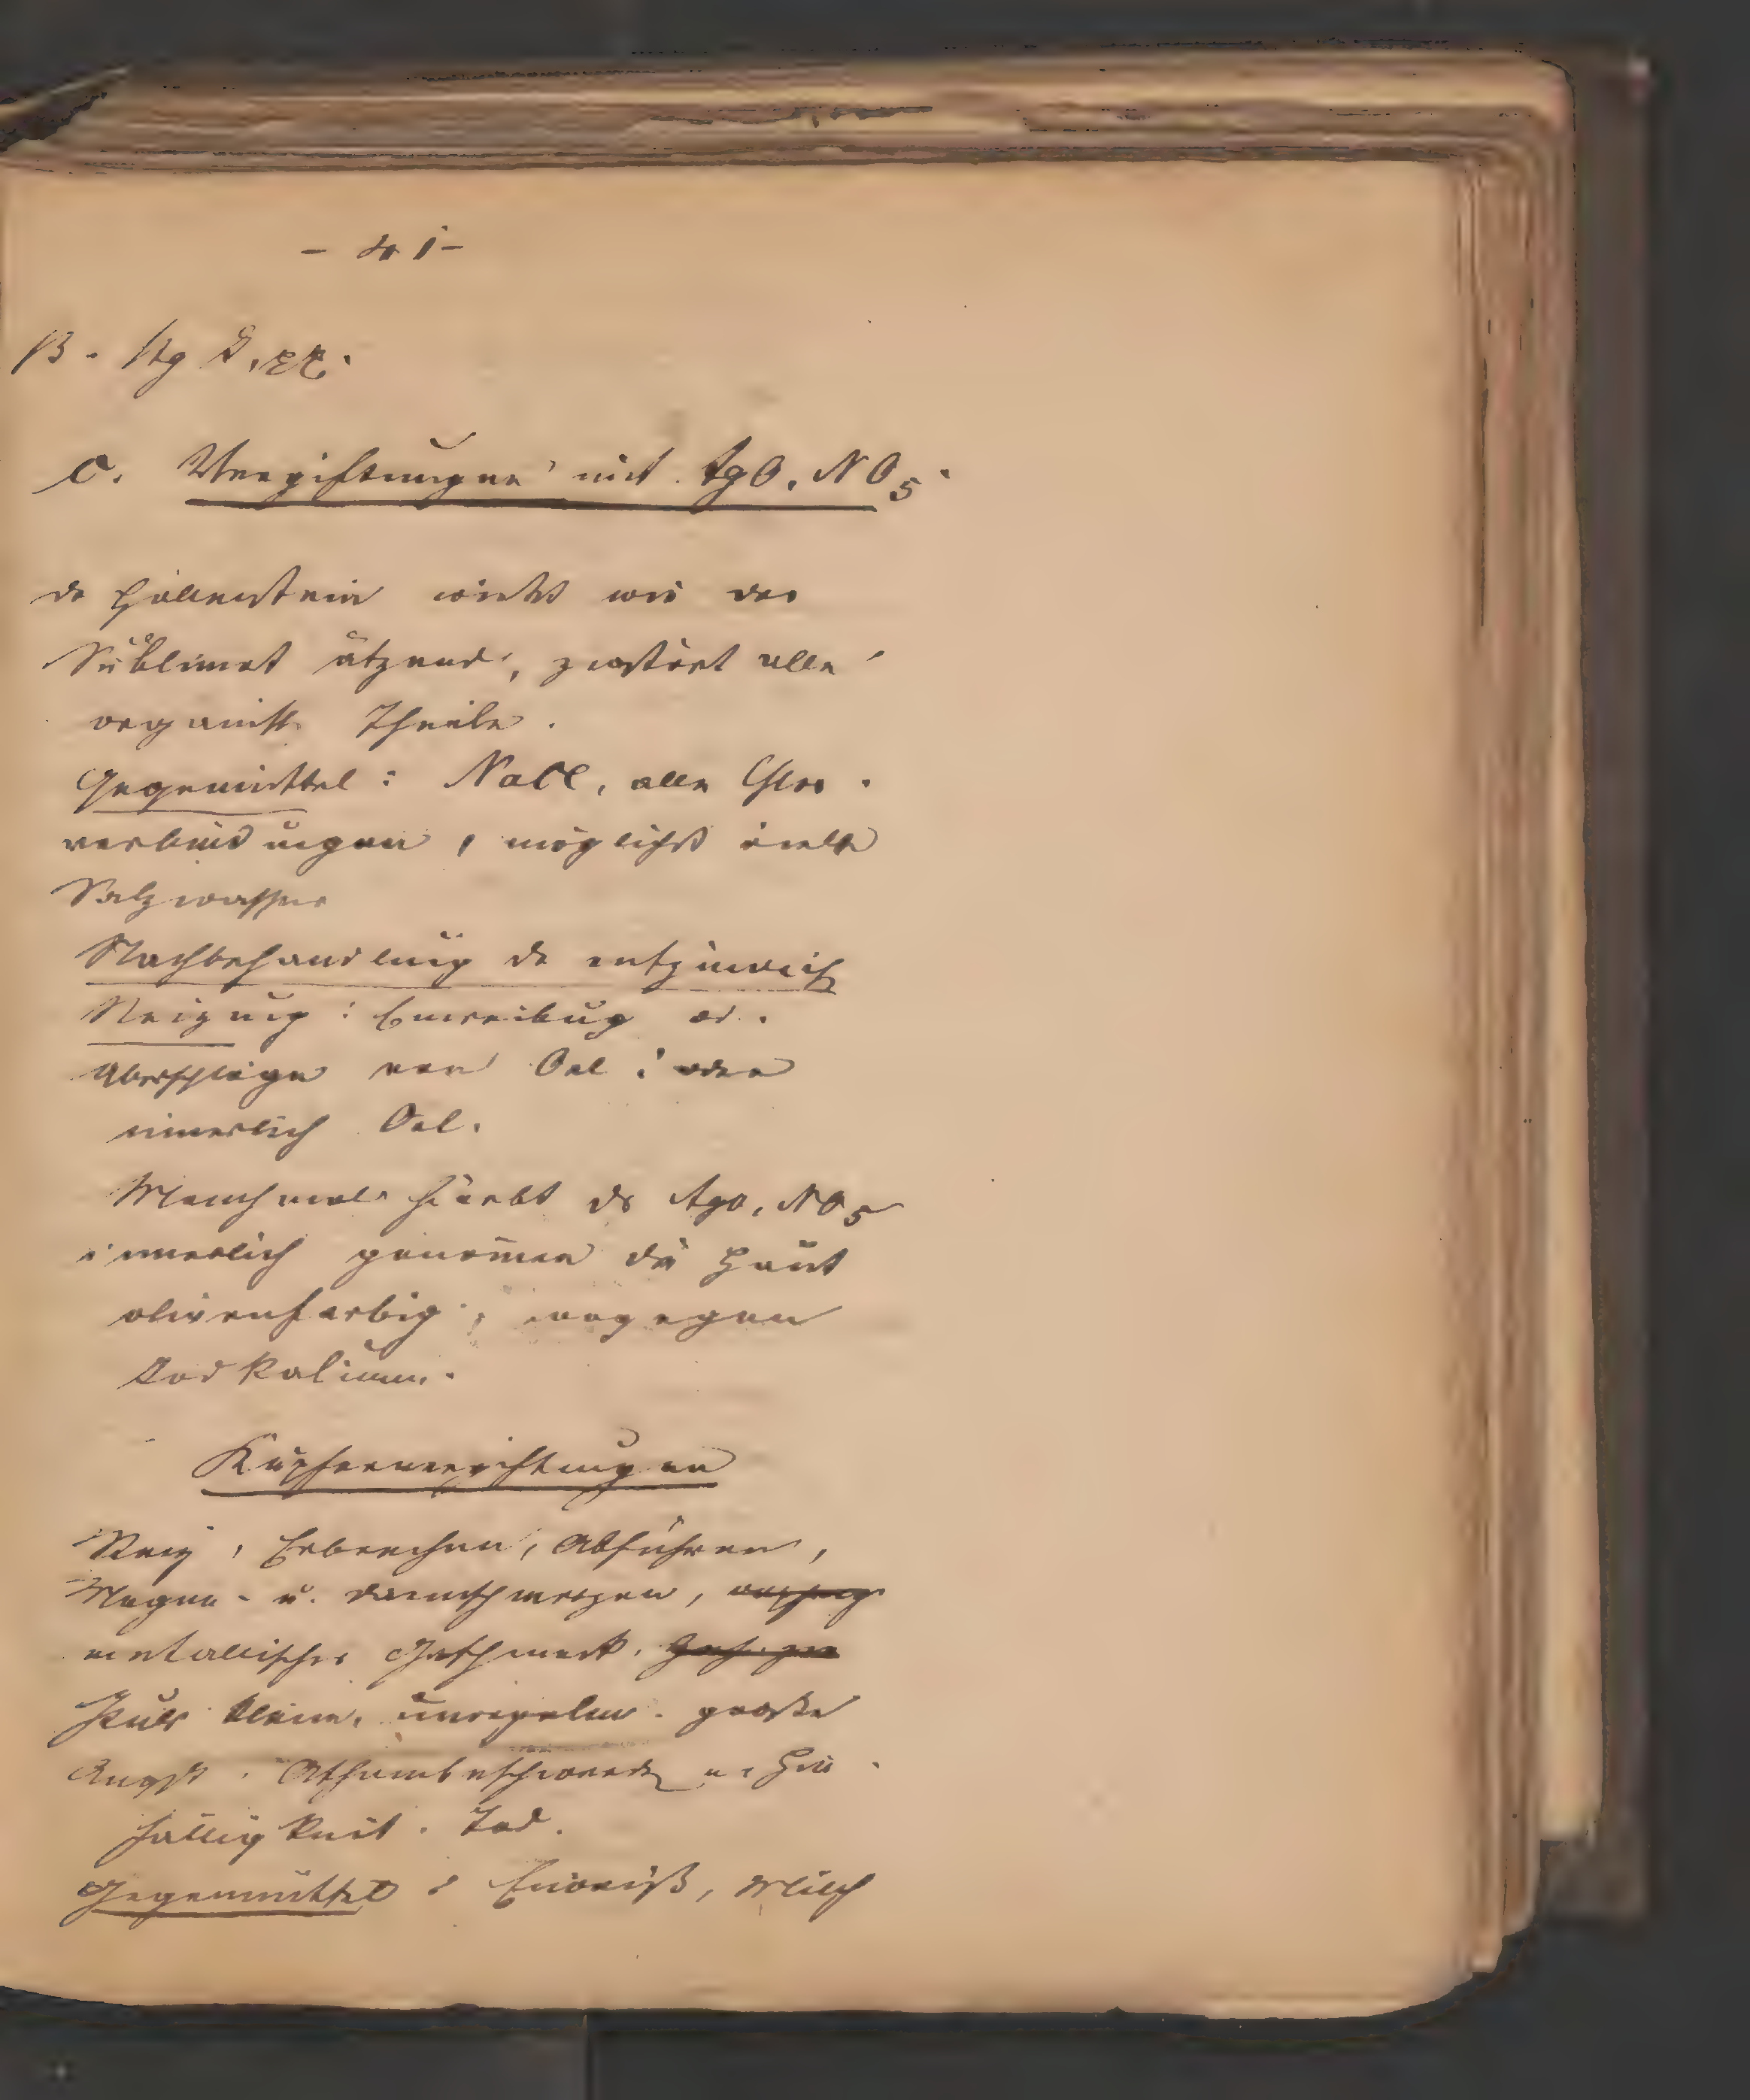 - 41 -
B. Hg
C. Vergiftungen mit AgO, NO5.
de Höllenstein wirkt wie das
Sublimat ätzend, zerstört alle
organisch Theile.
Gegenmittel: NaCl, alle Chlor-
verbindungen,  möglichst viele
Salzwasser
Nachbehandlung de entzündlich
Reizung: Einreibung od.
Überschläge von Oel: oder
innerlich Oel.
Manchmal färbt ds AgO, NO5
innerlich genom̄en die Haut
olivenfarbig,
Jodkalium.
Kupfervergiftungen
Reiz, Erbrechen, Abführen,
Magen- u. Darmschmerzen,
metallischer Geschmack.
Puls klein, unregelm. große
Angst. Athembeschwerde u. Hin-
fälligkeit. Tod.
Gegenmittel: Eiweiß, Milch